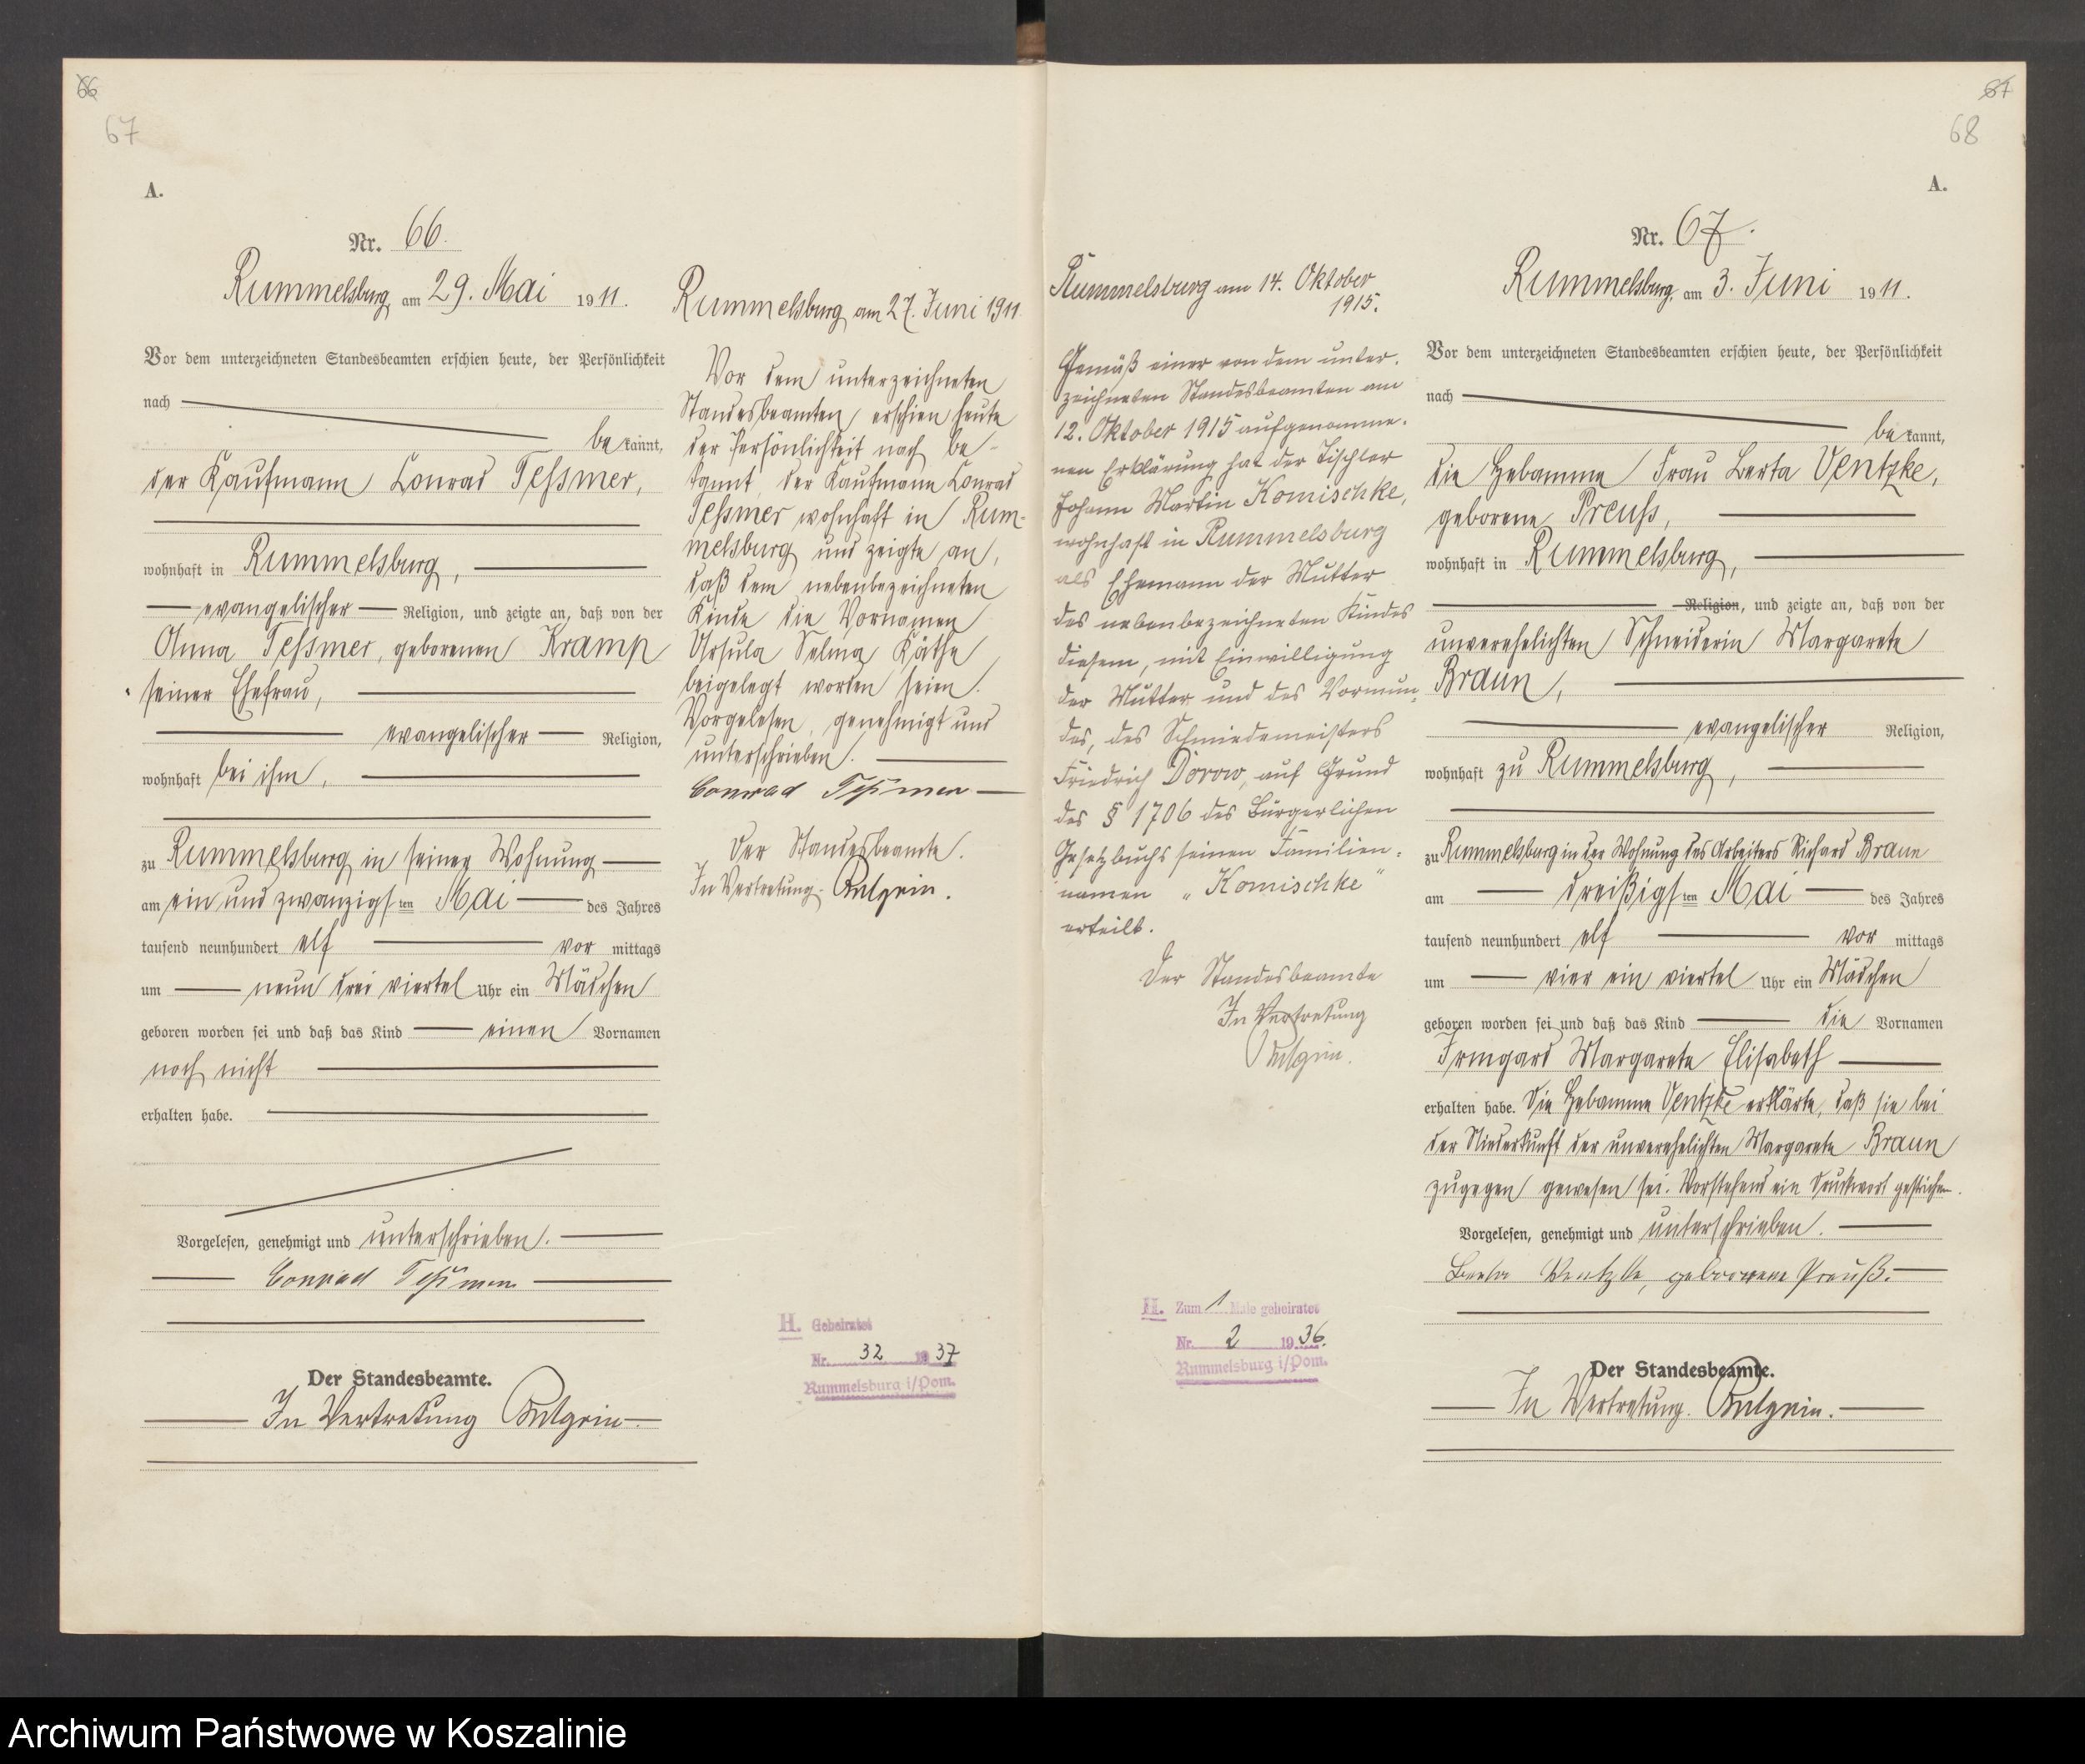 66
67
A.
Nr. 66.
Rummelsburg am 29. Mai 1911.
Vor dem unterzeichneten Standesbeamten erschien heute, der Persönlichkeit
nach
bekannt,
der Kaufmann Conrad Teßmer,
wohnhaft in Rummelsburg,
evangelischer Religion, und zeigte an, daß von der
Anna Teßmer, geborenen Kramp
seiner Ehefrau,
evangelischer Religion,
wohnhaft bei ihm,
zu Rummelsburg in seiner Wohnung
am ein und zwanzigsten Mai des Jahres
tausend neunhundert elf vor mittags
um neun drei viertel Uhr ein Mädchen
geboren worden sei und daß das Kind einen Vornamen
noch nicht
erhalten habe.
Vorgelesen, genehmigt und unterschrieben.
Conrad Teßmer
Der Standesbeamte.
In Vertretung
Rummelsburg am 27. Juni 1911
Vor dem unterzeichneten
Standesbeamten erschien heute
der Persönlichkeit nach be-
kannt, der Kaufmann Conrad
Teßmer wohnhaft in Rum-
melsburg und zeigte an,
daß dem nebenbezeichneten
Kinde die Vornamen
Ursula Selma Käthe
beigelegt worden seien.
Vorgelesen, genehmigt und
unterschrieben.
Conrad Teßmer
Der Standesbeamte.
In Vertretung.
H. Geheiratet
Nr. 32 1937
Rummelsburg i/Pom.
67
68
A.
Rummelsburg am 14. Oktober
1915.
Gemäß einer von dem unter-
zeichneten Standesbeamten am
12. Oktober 1915 aufgenomme-
nen Erklärung hat der Tischler
Johann Martin Komischke,
wohnhaft in Rummelsburg
als Ehemann der Mutter
des nebenbezeichneten Kindes
diesem, mit Einwilligung
der Mutter und des Vormun-
des, des Schmiedemeisters
Friedrich Dorow, auf Grund
des § 1706 des Bürgerlichen
Gesetzbuchs seinen Familien-
namen "Komischke"
erteilt.
Der Standesbeamte
In Vertretung
H. Zum 1 Male geheiratet
Nr. 2 1936.
Rummelsburg i/Pom.
Nr. 67.
Rummelsburg, am 3. Juni 1911.
Vor dem unterzeichneten Standesbeamten erschien heute, der Persönlichkeit
nach
bekannt,
die Hebamme Frau Berta Ventzke,
geborene Preuß,
wohnhaft in Rummelsburg,
Religion, und zeigte an, daß von der
unverehelichten Schneiderin Margarete
Braun,
evangelischer Religion,
wohnhaft zu Rummelsburg,
zu Rummelsburg in der Wohnung des Arbeiters Richard Braun
am dreißigsten Mai des Jahres
tausend neunhundert elf vor mittags
um vier ein viertel Uhr ein Mädchen
geboren worden sei und daß das Kind die Vornamen
Irmgard Margarete Elisabeth
erhalten habe. Die Hebamme Ventzke erklärte, daß sie bei
der Niederkunft der unverehelichten Margarete Braun
zugegen gewesen sei. Vorstehend ein Druckwort gestrichen.
Vorgelesen, genehmigt und unterschrieben.
Berta Ventzke, geborene Preuß.
Der Standesbeamte.
In Vertretung.
Archiwum Państwowe w Koszalinie